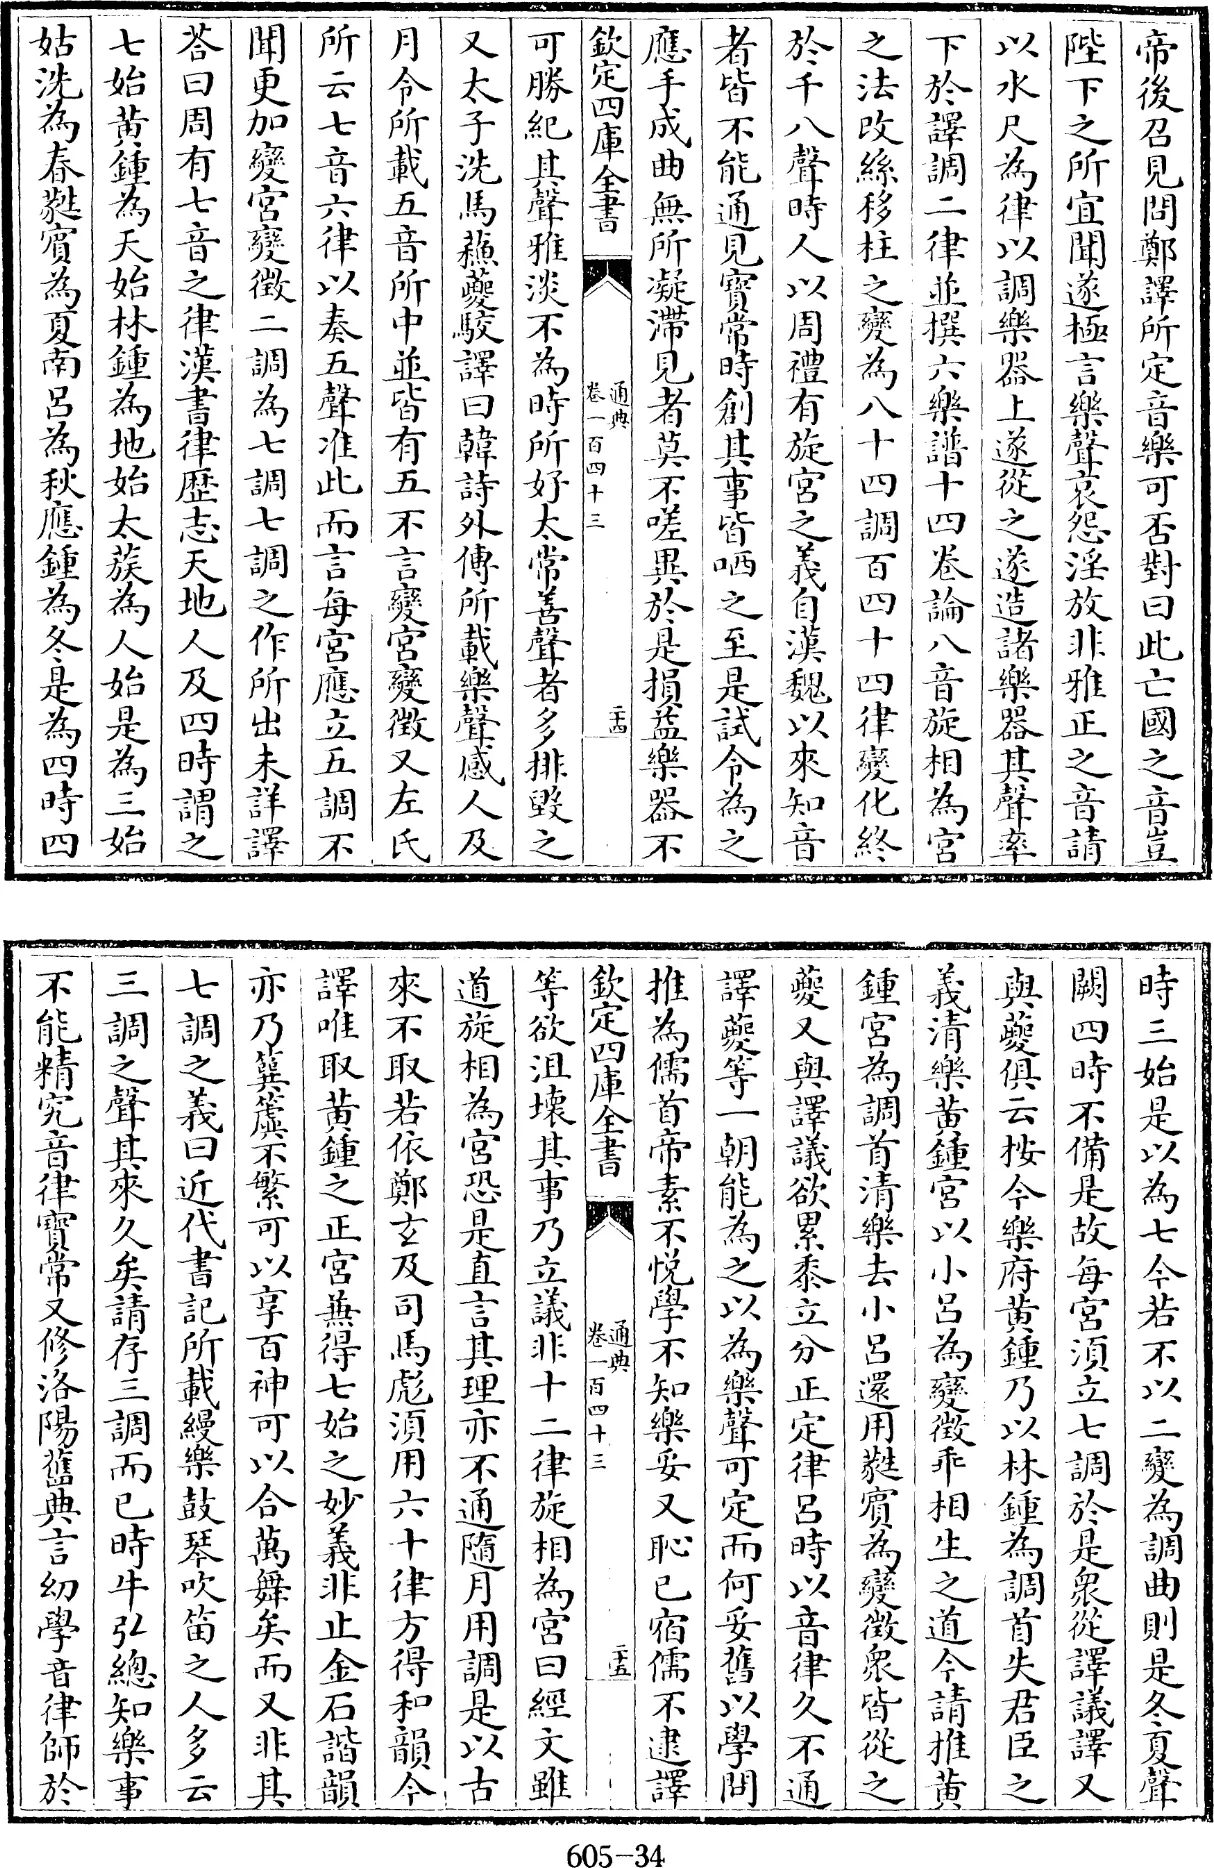 帝後召見問鄭譯所定音樂可否對曰此亡國之音豈
陛下之所宜聞遂極言樂聲哀怨淫放非雅正之音請
以水尺為律以調樂器上遂從之遂造諸樂器其聲率
下於譯調二律並撰六樂譜十四卷論八音旋相為宮
之法改絲移柱之變為八十四調百四十四律變化終
於千八聲時人以周禮有旋宮之義自漢魏以來知音
者皆不能通見寶常時創其事皆哂之至是試令為之
應手成曲無所凝滯見者莫不嗟異於是損益樂器不
欽定四庫全書
通典
卷一百四十三
二十四
可勝紀其聲雅淡不為時所好太常善聲者多排毀之
又太子洗馬蘇夔駮譯曰韓詩外傳所載樂聲感人及
月令所載五音所中並皆有五不言變宮變徵又左氏
所云七音六律以奏五聲准此而言每宮應立五調不
聞更加變宮變徵二調為七調七調之作所出未詳譯
荅曰周有七音之律漢書律歷志天地人及四時謂之
七始黃鍾為天始林鍾為地始太蔟為人始是為三始
姑洗為春蕤賓為夏南呂為秋應鍾為冬是為四時四
時三始是以為七今若不以二變為調曲則是冬夏聲
闕四時不備是故每宮須立七調於是衆從譯議譯又
與夔俱云按今樂府黃鍾乃以林鍾為調首失君臣之
義清樂黃鍾宮以小呂為變徵乖相生之道今請推黃
鍾宮為調首清樂去小呂還用蕤賓為變徵衆皆從之
夔又與譯議欲累黍立分正定律呂時以音律久不通
譯夔等一朝能為之以為樂聲可定而何妥舊以學問
推為儒首帝素不悅學不知樂妥又恥已宿儒不逮譯
欽定四庫全書
通典
卷一百四十三
二十五
等欲沮壞其事乃立議非十二律旋相為宮曰經文雖
道旋相為宮恐是直言其理亦不通隨月用調是以古
來不取若依鄭玄及司馬彪須用六十律方得和韻今
譯唯取黃鍾之正宮兼得七始之妙義非止金石諧韻
亦乃簨簴不繁可以享百神可以合萬舞矣而又非其
七調之義曰近代書記所載縵樂鼓琴吹笛之人多云
三調之聲其來久矣請存三調而已時牛弘總知樂事
不能精究音律寶常又修洛陽舊典言幼學音律師於
605-34